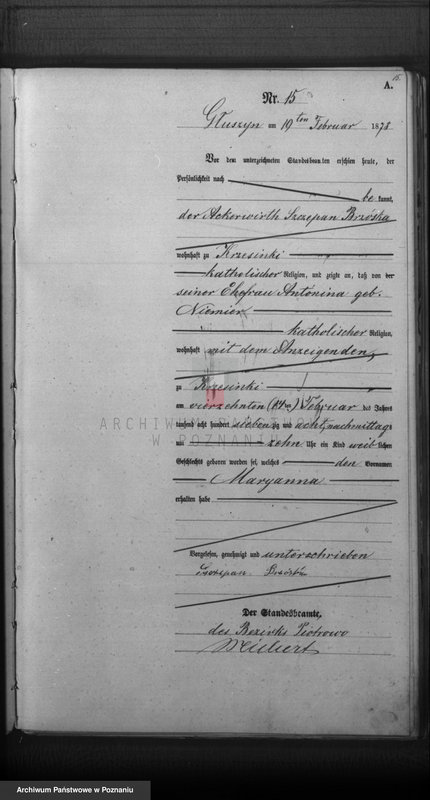 15.
A.
Nr. 15
Głuszyn am 19ten Februar 1878
Vor dem unterzeichneten Standesbeamten erschien heute, der
Persönlichkeit nach
be kannt,
der Ackerwirth Szczepan Brzóska
wohnhaft zu Krzesinki
katholischer Religion, und zeigte an, daß von der
seiner Ehefrau Antonina geb.
Niemier
katholischer Religion,
wohnhaft mit dem Anzeigenden,
zu Krzesinki
am vierzehnten (14ten) Februar des Jahres
tausend acht hundert siebenzig und acht, nachmittags
um zehn Uhr ein Kind weiblichen
Geschlechts geboren worden sei, welches den Vornamen
Maryanna
erhalten habe
Vorgelesen, genehmigt und unterschrieben
Szczepan Brzóska
Der Standesbeamte,
des Bezirks Piotrowo
ARCHIWUM PAŃSTWOWE
W POZNANIU
Archiwum Państwowe w Poznaniu